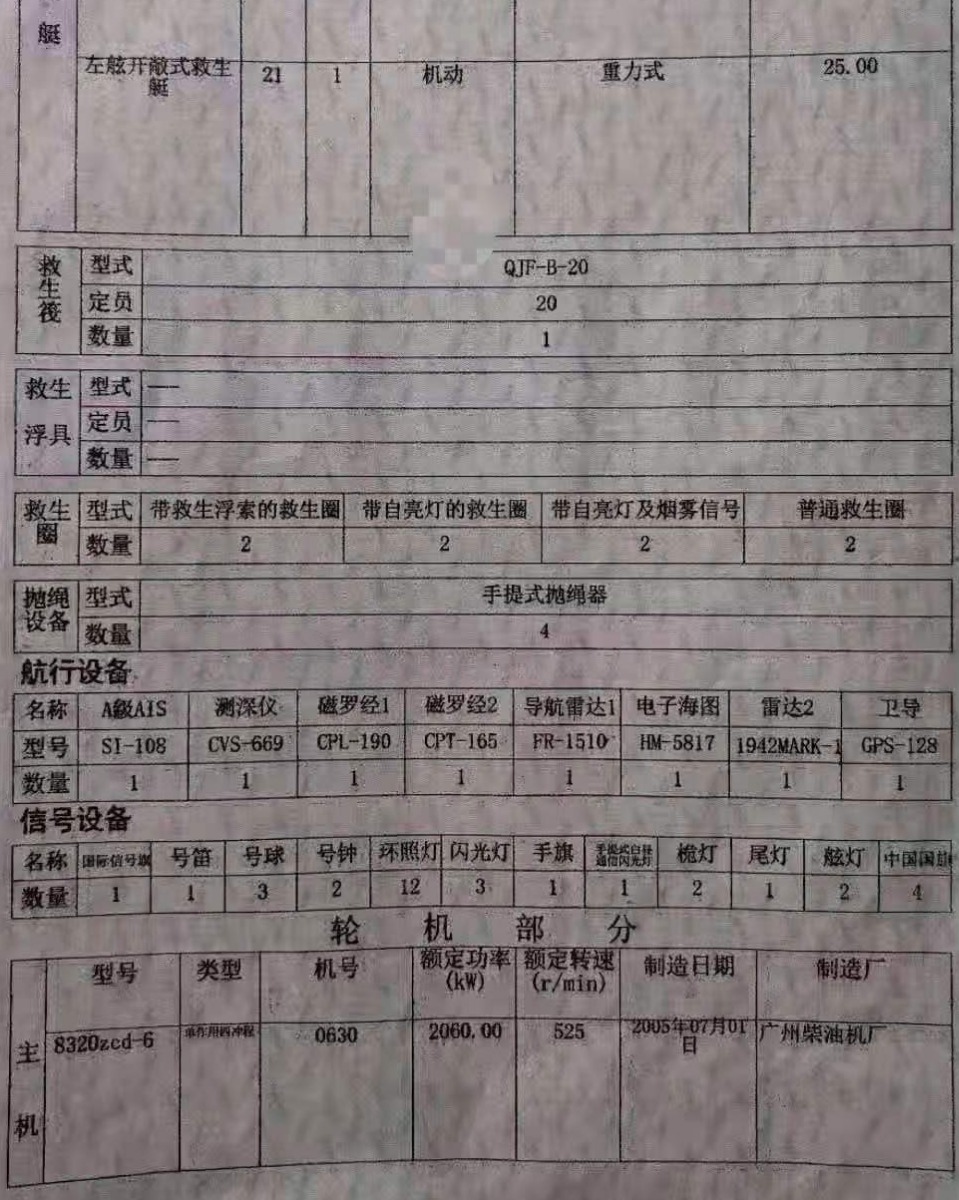 艇
左舷开敞式救生艇 21 1 机动 重力式 25.00
救生筏 型式 QJF-B-20
定员 20
数量 1
救生浮具 型式 ——
定员 ——
数量 ——
救生圈 型式 带救生浮索的救生圈 带自亮灯的救生圈 带自亮灯及烟雾信号 普通救生圈
数量 2 2 2 2
抛绳设备 型式 手提式抛绳器
数量 4
航行设备
名称 A级AIS 测深仪 磁罗经1 磁罗经2 导航雷达1 电子海图 雷达2 卫导
型号 SI-108 CVS-669 CPL-190 CPT-165 FR-1510 HM-5817 1942MARK-1 GPS-128
数量 1 1 1 1 1 1 1 1
信号设备
名称 国际信号旗 号笛 号球 号钟 环照灯 闪光灯 手旗 手提式白昼通信闪光灯 桅灯 尾灯 舷灯 中国国旗
数量 1 1 3 2 12 3 1 1 2 1 2 4
轮机部分
主机 型号 类型 机号 额定功率(kW) 额定转速(r/min) 制造日期 制造厂
8320zcd-6 单作用四冲程 0630 2060.00 525 2005年07月01日 广州柴油机厂